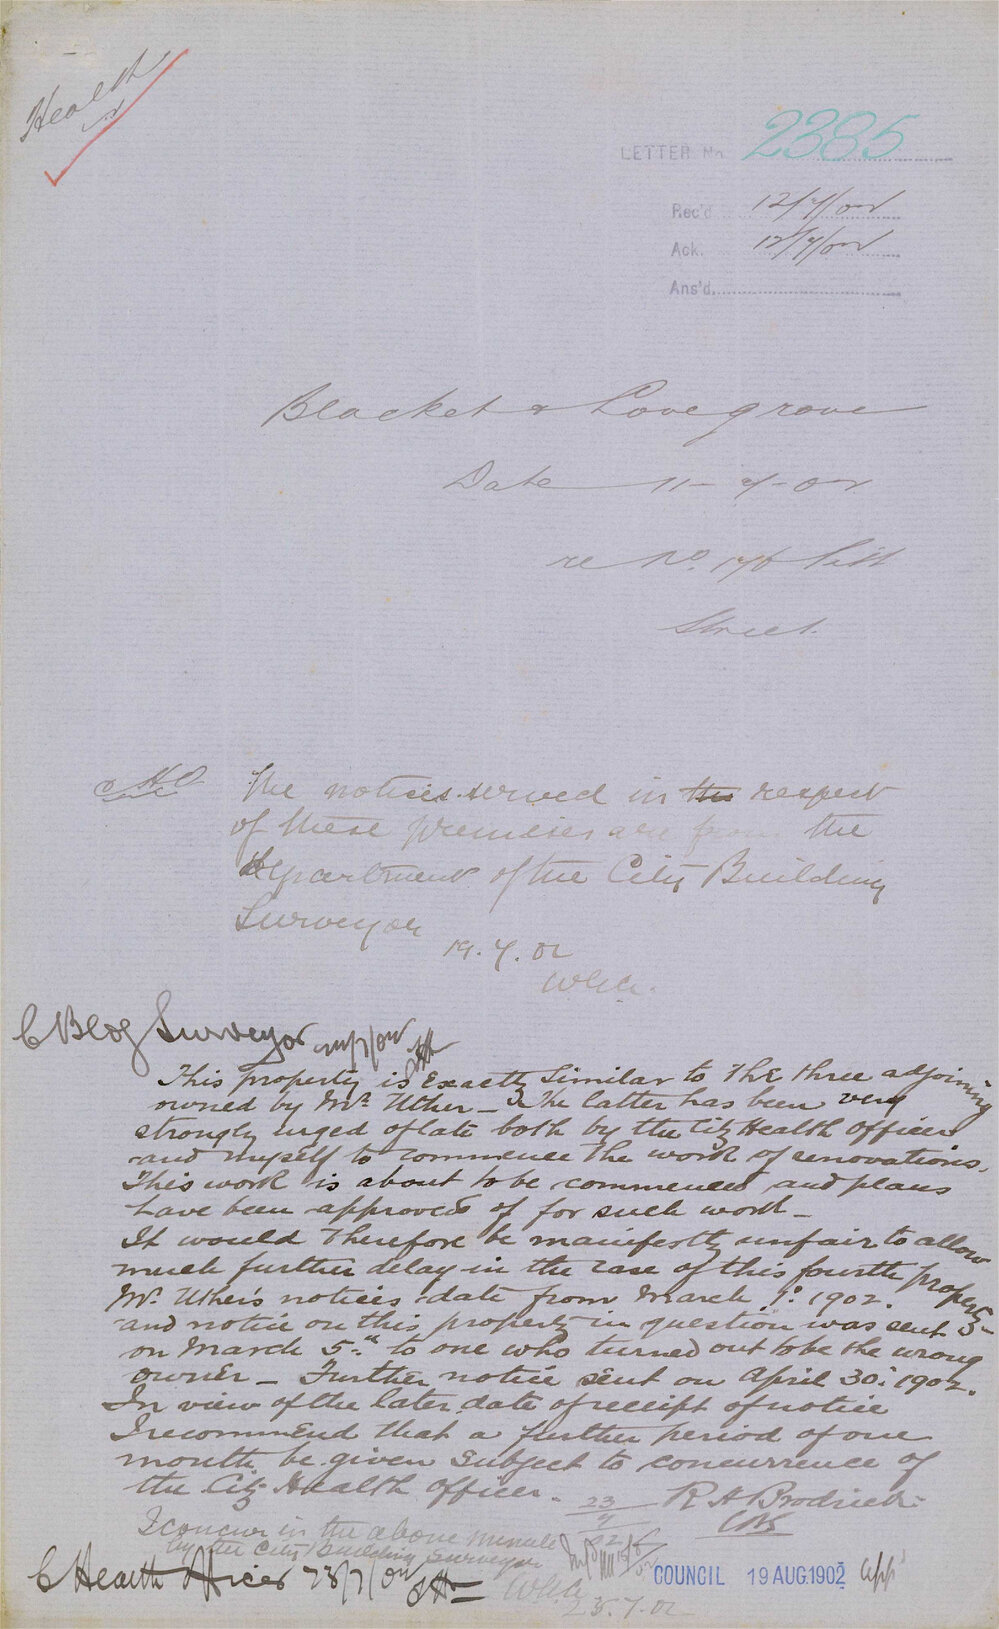 Health
LETTER No. 2385
Rec'd 12/7/02
Ack. 12/7/02
Ans'd.
Blacket & Lovegrove
Date 11-7-02
re No. 176 Pitt
Street.
C H O
The notices served in the respect
of these premises are from the
department of the City Building
Surveyor
19.7.02
W.G.A.
C Bldg Surveyor /7/02
This property is exactly similar to the three adjoining
owned by Mr. Uther – The latter has been very
strongly urged of late both by the City Health Officer
and myself to commence the work of renovations.
This work is about to be commenced and plans
have been approved of for such work –
It would therefore be manifestly unfair to allow
much further delay in the case of this fourth property –
Mr. Uther's notices date from March 1st 1902.
and notice on this property in question was sent
on March 5th to one who turned out to be the wrong
owner – Further notice sent on April 30: 1902.
In view of the later date of receipt of notice
I recommend that a further period of one
month be given subject to concurrence of
the City Health Officer. –
23/7/02 R H Brodrick
CBS
I concur in the above minute
by the City Building Surveyor
C Health Officer 23/7/02
W.G.A.
25.7.02
COUNCIL 19 AUG. 1902 app'